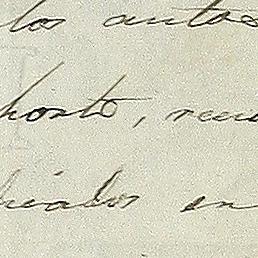 los autos
hosto, reci
licados en